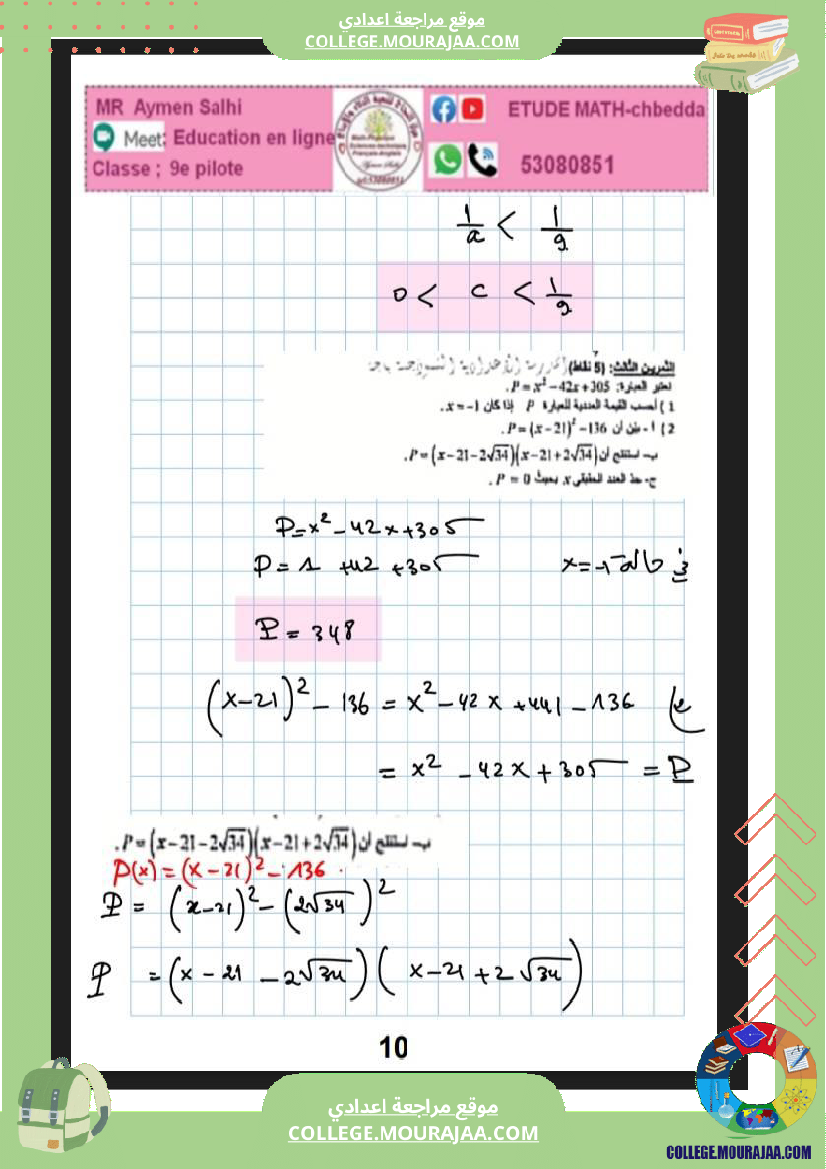 موقع مراجعة اعدادي
COLLEGE.MOURAJAA.COM
MR Aymen Salhi
Meet: Education en ligne
Classe ; 9e pilote
ETUDE MATH-chbedda
53080851
1/a < 1/9
0 < c < 1/9
التمرين الثالث: (5 نقاط)
نعتبر العبارة: P = x² − 42x + 305.
1 ) أحسب القيمة العددية للعبارة P إذا كان x = −1.
2 ) أ - بيّن أن P = (x − 21)² − 136.
ب- استنتج أن P = (x − 21 − 2√34)(x − 21 + 2√34).
ج- جد العدد الحقيقي x بحيث P = 0.
P = x² − 42x + 305
P = 1 + 42 + 305 في حالة x = −1
P = 348
(x − 21)² − 136 = x² − 42x + 441 − 136
= x² − 42x + 305 = P
ب- استنتج أن P = (x − 21 − 2√34)(x − 21 + 2√34).
P(x) = (x − 21)² − 136.
P = (x − 21)² − (2√34)²
P = (x − 21 − 2√34)(x − 21 + 2√34)
10
موقع مراجعة اعدادي
COLLEGE.MOURAJAA.COM
COLLEGE.MOURAJAA.COM